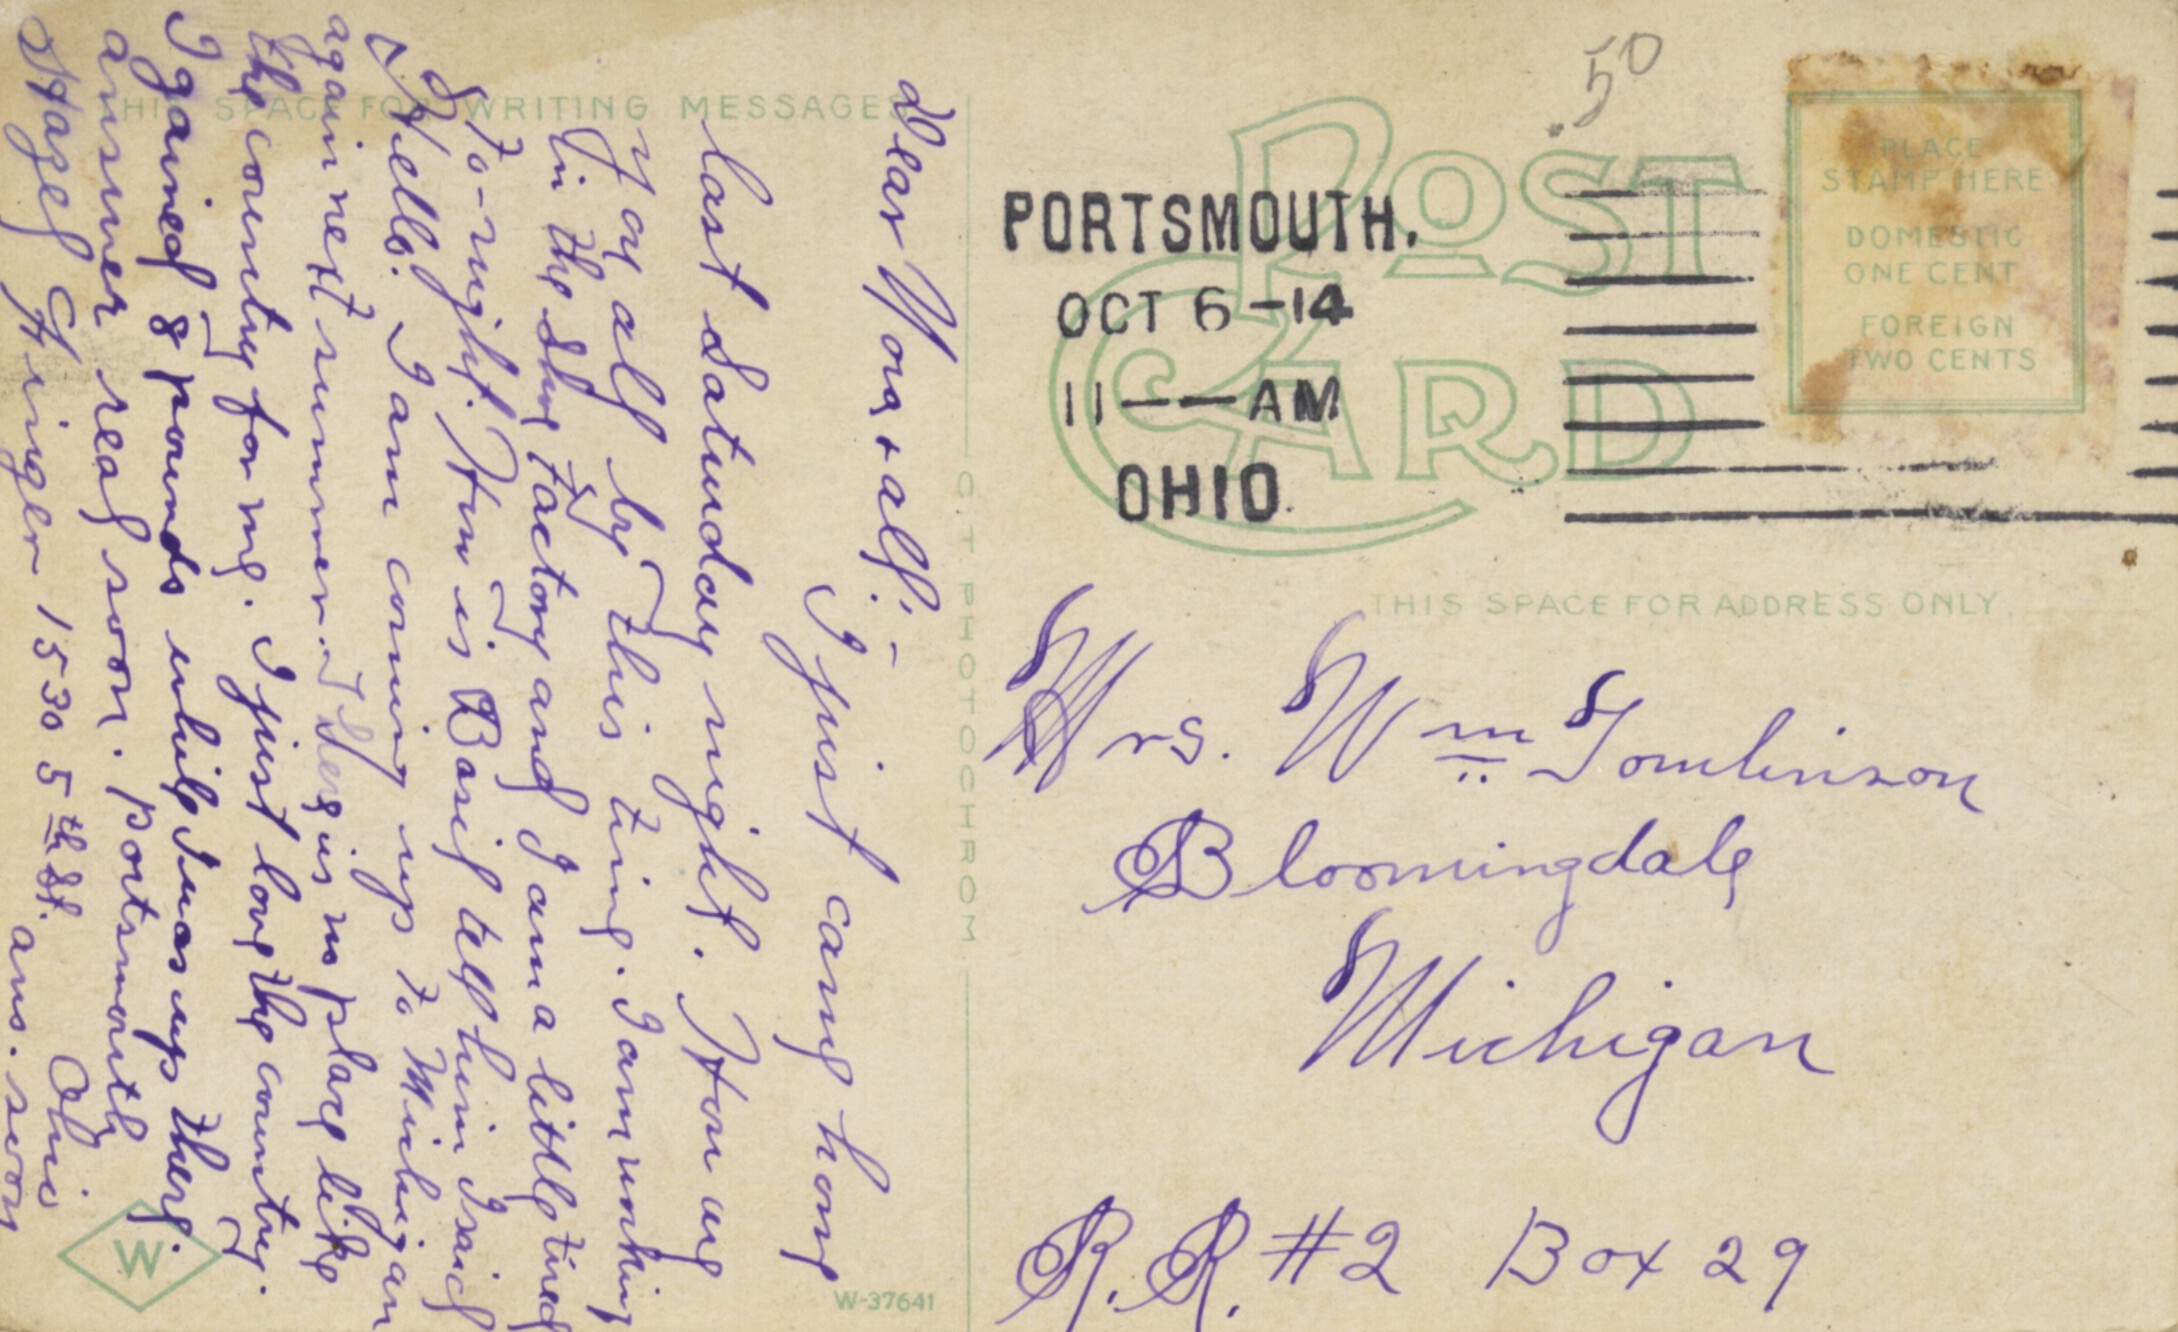 THIS SPACE FOR WRITING MESSAGES
Dear Nora & all:-
I just came home
last Saturday night. How are
you all by this time. I am working
in the Shoe Factory and I am a little tired
to-night. How is Basil tell him I said
Hello. I am coming up to Michigan
again next summer. There is no place like
the country for me. I just love the country.
I gained 8 pounds while I was up there.
answer real soon. Portsmouth
Ohio
Hazel Ginger 1530 5th St.
ans. soon
C. T. PHOTOCHROM
W
W-37641
.50
POST CARD
PLACE
STAMP HERE
DOMESTIC
ONE CENT
FOREIGN
TWO CENTS
PORTSMOUTH.
OCT 6-14
11--AM
OHIO
THIS SPACE FOR ADDRESS ONLY.
Mrs. Wm Tomlinson
Bloomingdale
Michigan
R.R. #2 Box 29